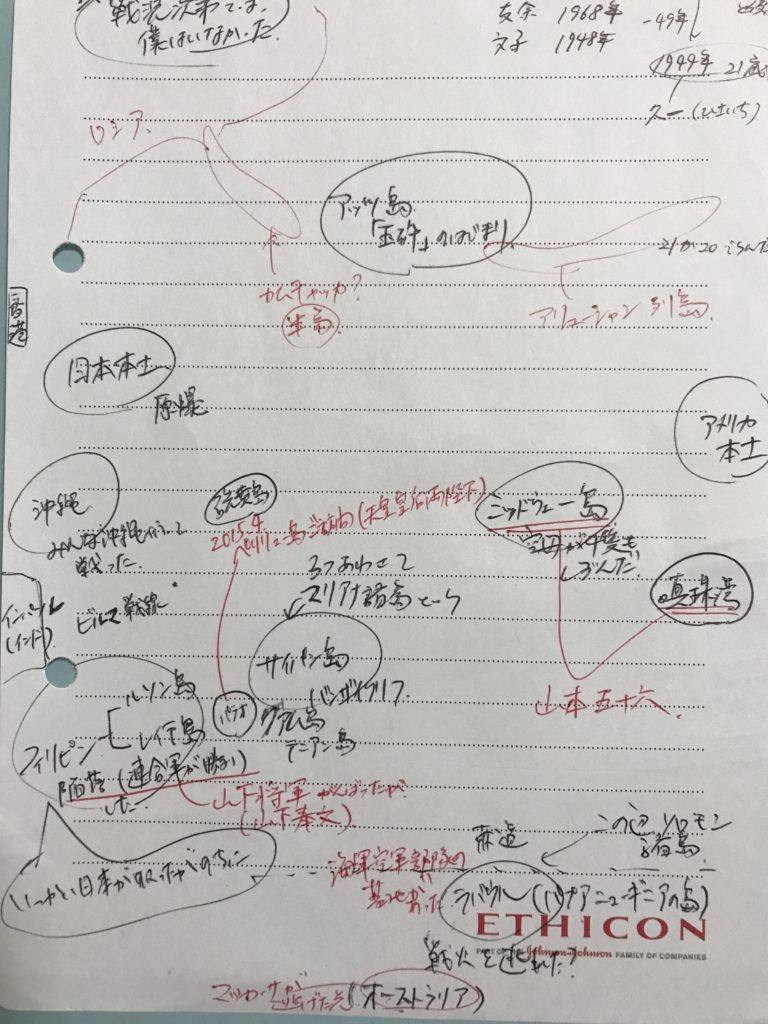 戦況次第では、
僕はいなかった。
友余 1968年
文子 1948年
-49年
1949年 21歳
久一(ひさいち)
ロシア
アッツ島
「玉砕」のはじまり
21か20
カムチャッカ?
半島
アリューシャン列島
香港
日本本土
原爆
アメリカ
本土
沖縄
みんな沖縄
戦った。
硫黄島
2015.4
ペリリュー島ご訪問(天皇皇后両陛下)
ミッドウェー島
空母が4隻も
しずんだ。
真珠湾
山本五十六
3つあわせて
マリアナ諸島という
インパール
(インド)
ビルマ戦線
サイパン島
バンザイクリフ
グアム島
テニアン島
パラオ
フィリピン
ルソン島
レイテ島
陥落(連合軍が勝利)
した
山下将軍がんばったが
(山下奉文)
いったい日本が取ったがのちに
赤道
この辺ソロモン
諸島
海軍空軍部隊の
基地だった
ラバウル(パプアニューギニアの島)
ETHICON
PART OF THE Johnson-Johnson FAMILY OF COMPANIES
戦火を逃れた?
マッカーサーが
逃げた先(オーストラリア)